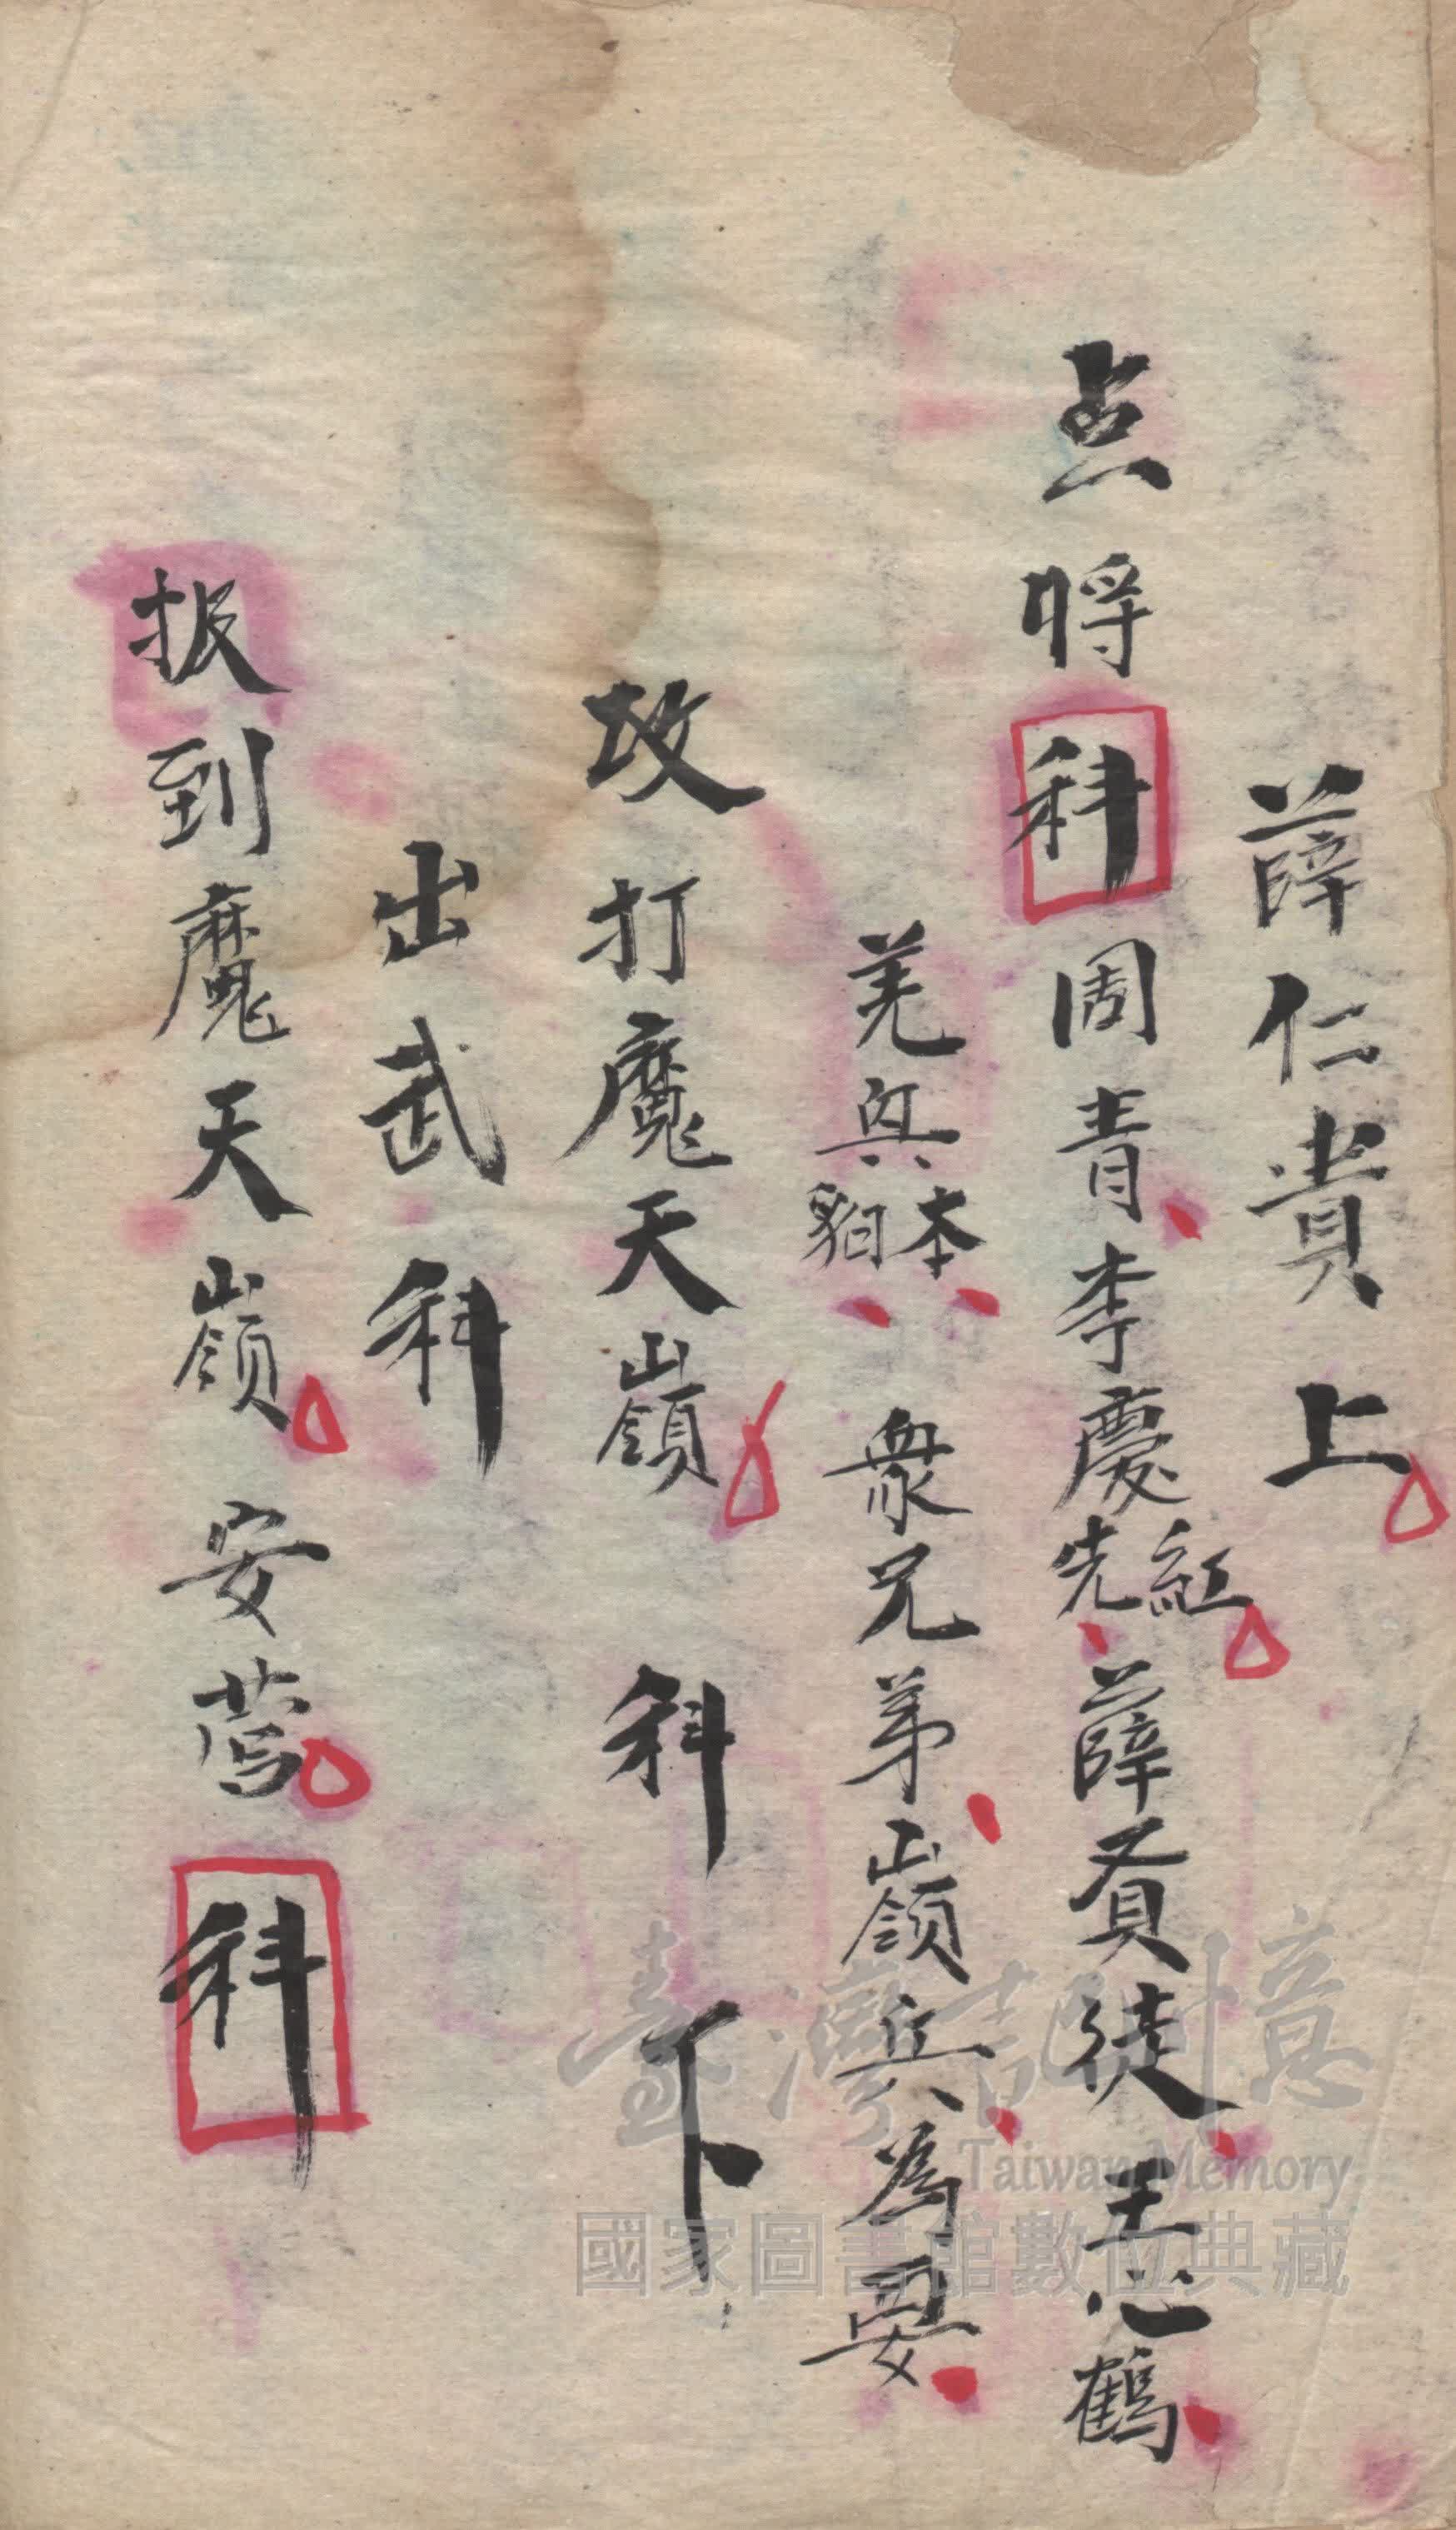 薛仁貴上
点将科周青李慶先紅薛賢徒王心鶴
羌兵本狛衆兄弟嶺兵為要
攻打魔天嶺科下
出武科
报到魔天嶺安营科
臺灣記憶
Taiwan Memory
國家圖書館數位典藏